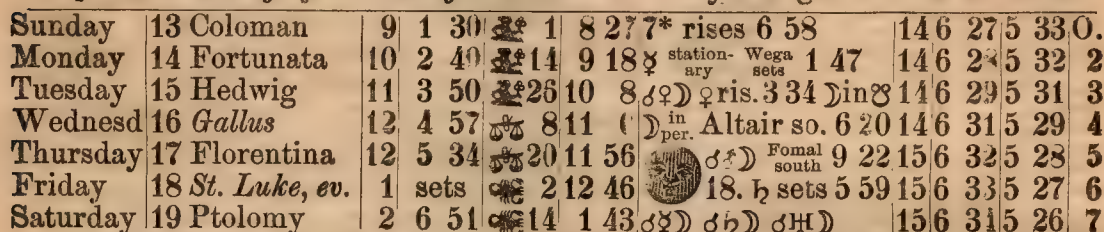 Sunday 13 Coloman 9 1 30 1 8 27 7* rises 6 58 14 6 27 5 33 O.
Monday 14 Fortunata 10 2 40 14 9 18 ☿ station-ary Wega sets 1 47 14 6 5 32 2
Tuesday 15 Hedwig 11 3 50 26 10 8 ☌♀☽ ♀ris. 3 34 ☽in☋ 14 6 29 5 31 3
Wednesd 16 Gallus 12 4 57 ♎ 8 11 ☽ in per. Altair so. 6 20 14 6 31 5 29 4
Thursday 17 Florentina 12 5 34 ♎ 20 11 56 ☌♂☽ Fomal south 9 22 15 6 32 5 28 5
Friday 18 St. Luke, ev. 1 sets 2 12 46 18. ♄ sets 5 59 15 6 33 5 27 6
Saturday 19 Ptolomy 2 6 51 14 1 43 ☌☿☽ ☌♄☽ ☌♅☽ 15 6 34 5 26 7